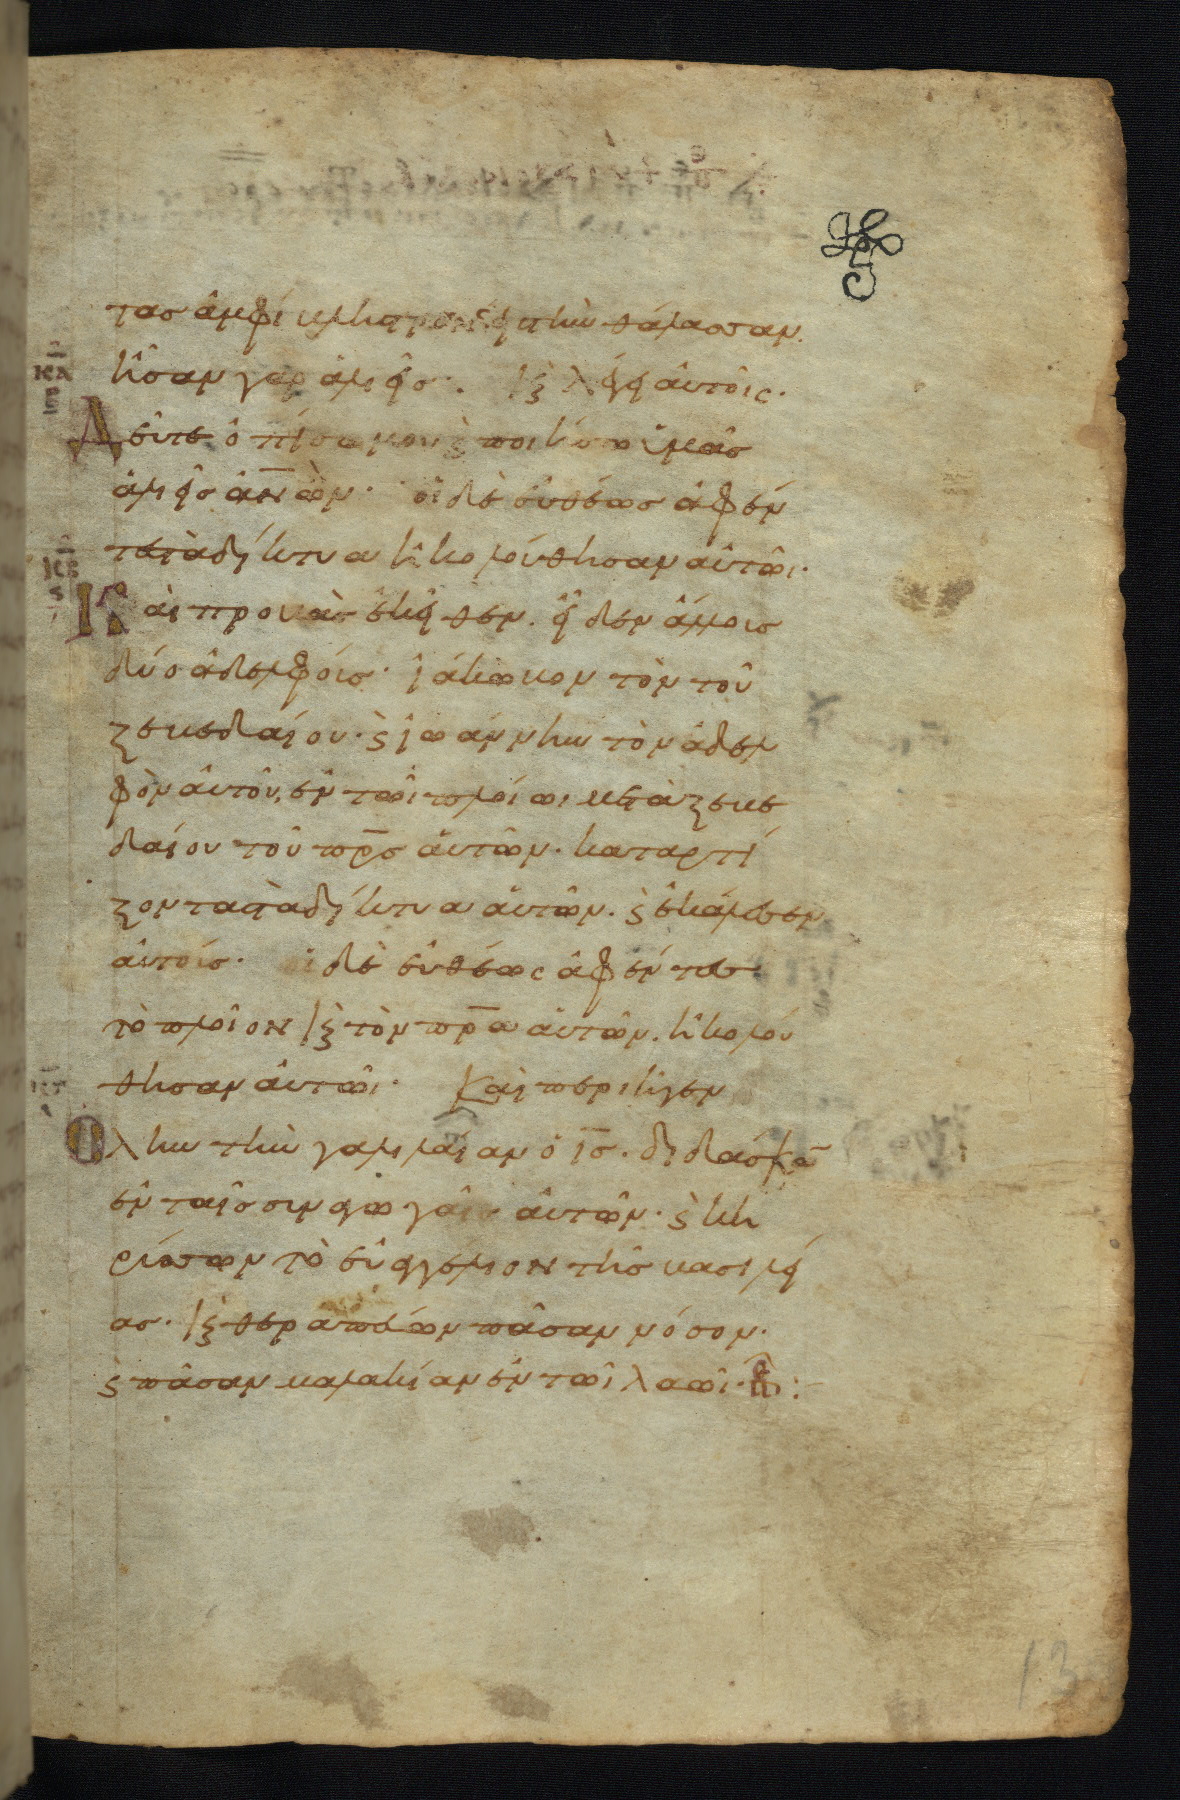 τας ἀμφίβληστρον εἰς τὴν θάλασσαν.
ἦσαν γὰρ ἁλιεῖς· κ(αὶ) λέγει αὐτοῖς·
κα
Δεῦτε ὀπίσω μου κ(αὶ) ποιήσω ὑμᾶς
ἁλιεῖς ἀν̅ων· οἱ δὲ εὐθέως ἀφέν
τες τὰ δίκτυα ἠκολούθησαν αὐτῶι·
κβ
Καὶ προβὰς ἐκεῖθεν. εἶδεν ἄλλους
δύο ἀδελφούς· ἰάκωβον τὸν τοῦ
ζεβεδαίου· κ(αὶ) ἰωάννην τὸν ἀδελ
φὸν αὐτοῦ, ἐν τῶι πλοίωι μετὰ ζεβε
δαίου τοῦ πρ̅ς αὐτῶν· καταρτί
ζοντας τὰ δίκτυα αὐτῶν. κ(αὶ) ἐκάλεσεν
αὐτούς· οἱ δὲ εὐθέως ἀφέντες
τὸ πλοῖον κ(αὶ) τὸν πρ̅α αὐτῶν. ἠκολού
θησαν αὐτῶι· Καὶ περιῆγεν
κγ
Ολην τὴν γαλιλαίαν ὁ ις̅. διδάσκω̅
ἐν ταῖς συναγωγαῖς αὐτῶν· κ(αὶ) κη
ρύσσων τὸ εὐαγγέλιον τῆς βασιλεί
ας· κ(αὶ) θεραπεύων πᾶσαν νόσον·
κ(αὶ) πᾶσαν μαλακίαν ἐν τῶι λαῶι·
13